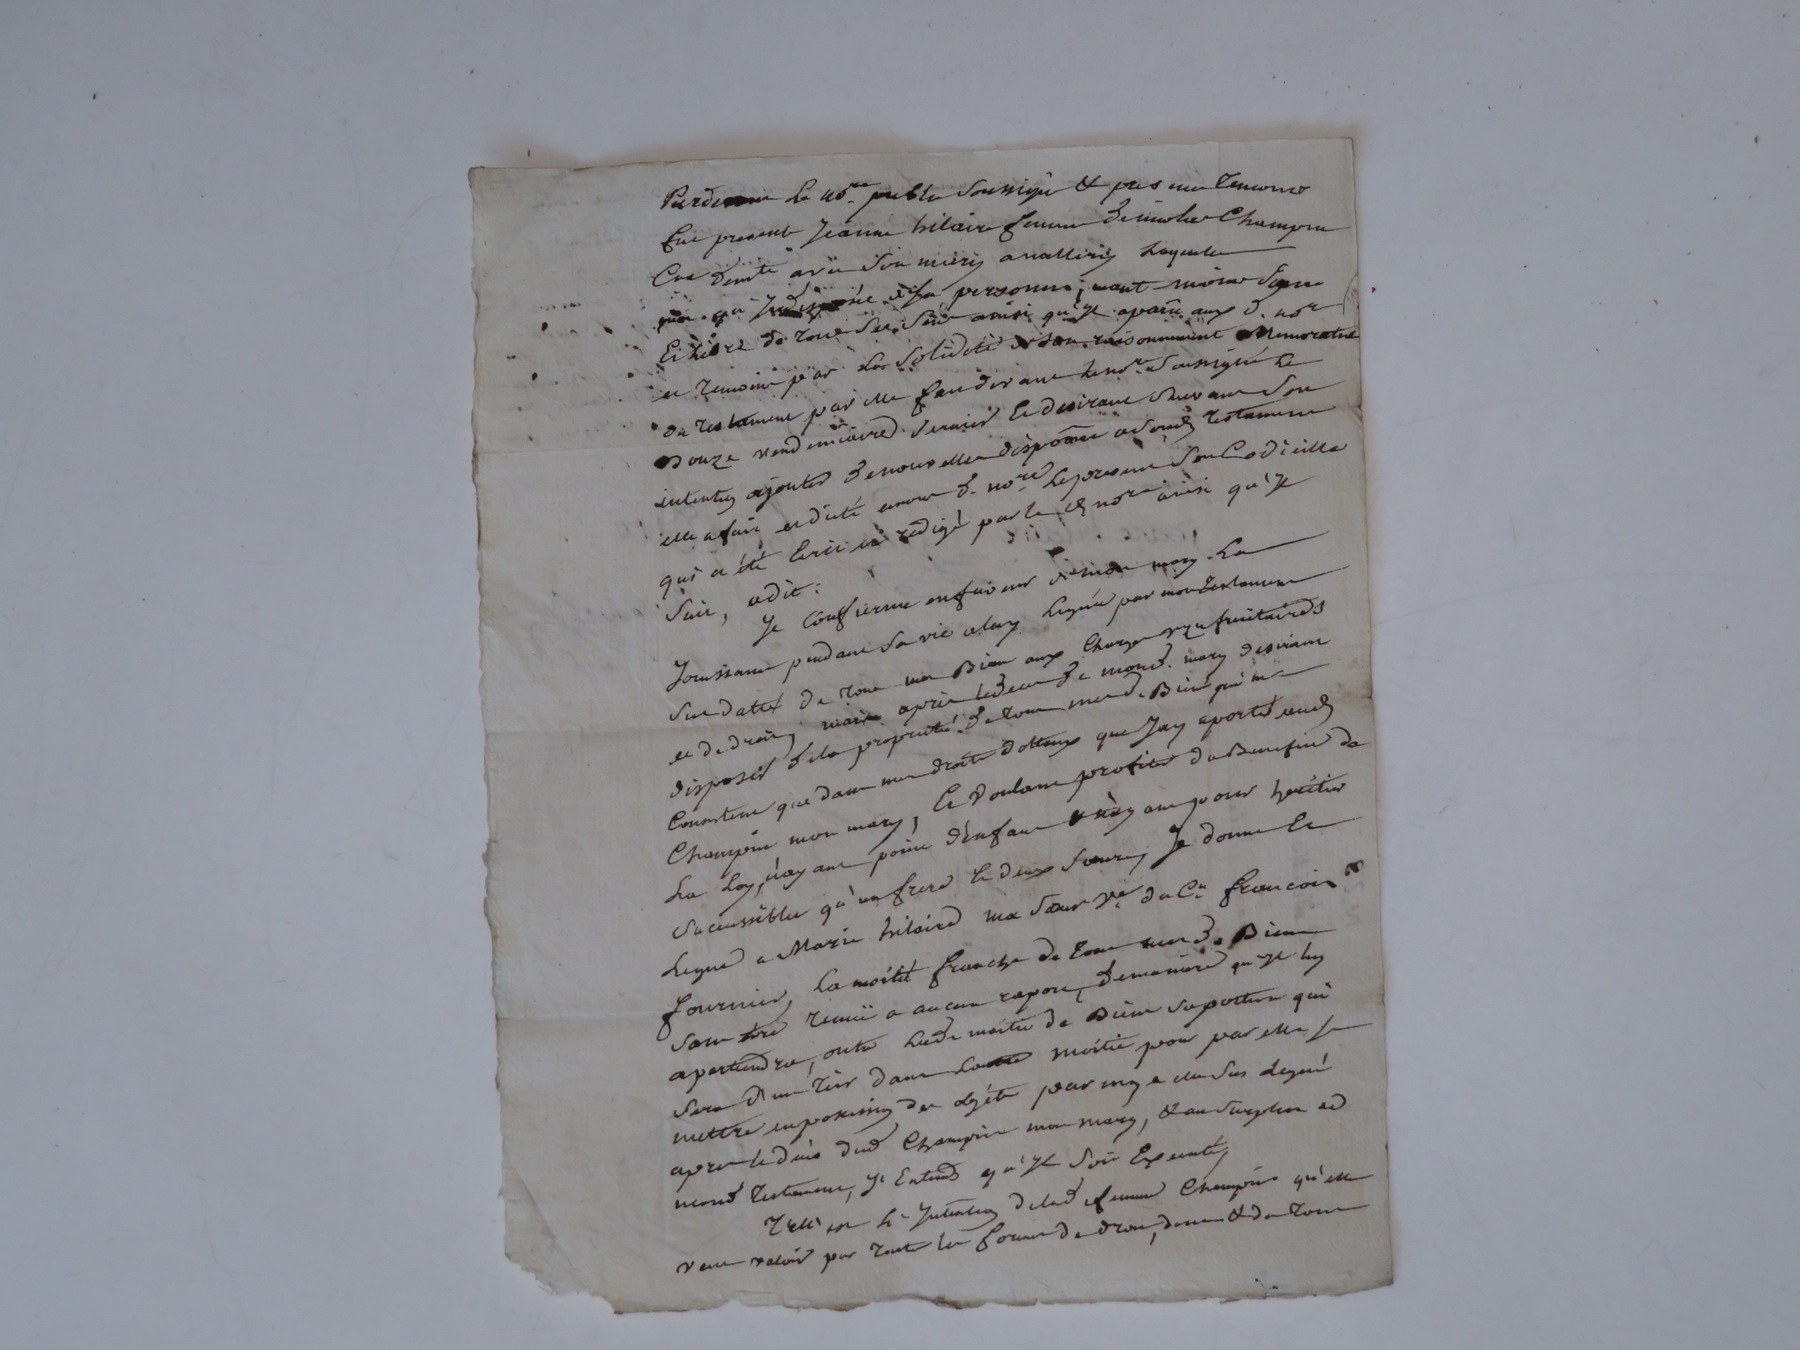 Pardevant le no.re public soussigné & pres.ce temoins
fut presente Jeanne hilaire femme de nicolas Champin
avec son mary laquelle
indisposée de sa personne, neant moins saine
Et libre de tous ses sens ainsi qu'Il aparu aux d. no.re
et temoins par la solidité de son raisonnement Memorative
du testament par elle fait devant le no.re soussigné le
Douze vendemiaire dernier Et desirant suivant son
intention ajouter de nouvelles disposõns a sond. testament
elle a fait et dicté aud. no.re le present son Codicille
qui a été Ecrit et redigé par le d. no.re ainsi qu'Il
suit, a dit:
Je Confirme en faveur de mon mary La
Jouissance pendant sa vie a luy leguée par mon testament
susdatté de tous mes Biens aux Charges usufruitaires
et de droit, mais après le deces de mond. mary desirant
disposer de la proprieté de tous mesd. Biens qui ne
Consistent que dans mes droits dotteaux que J'ay aportés aud.
Champin mon mary, Et voulant profiter du Benefice de
La loy, n'ayant point d'Enfant & n'ayant pour heritier
successibles qu'un frere Et deux soeurs, Je donne Et
Legue a Marie hilaire ma soeur v.e du C.n francois
fournier, La moitié franche de tous mesd. Biens
sans être tenuë a aucun raport, de maniere qu'Il luy
apartiendra, outre lad. moitié de Biens sa portion qui
sera d'un tier dans moitié pour par elle se
mettre en possession des objets par moy a elle sus legués
après le deces dud. Champin mon mary, & au surplus de
mond. testament, Je Entend qu'Il soit Executé,
Telle est L'Intention de lad. femme Champin qu'elle
veut valoir par toutes les formes de droit, dont & de tout